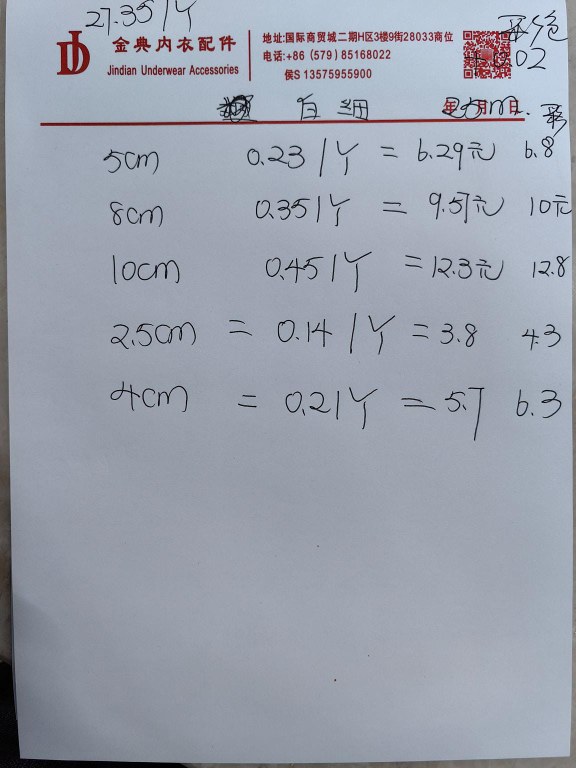 27.35/Y
金典内衣配件
Jindian Underwear Accessories
地址:国际商贸城二期H区3楼9街28033商位
电话:+86 (579) 85168022
侯S 13575955900
彩色
+0.02
白 细 25m. 彩
5cm 0.23/Y = 6.29元 6.8
8cm 0.35/Y = 9.57元 10元
10cm 0.45/Y = 12.3元 12.8
2.5cm = 0.14/Y = 3.8 4.3
4cm = 0.21/Y = 5.7 6.3